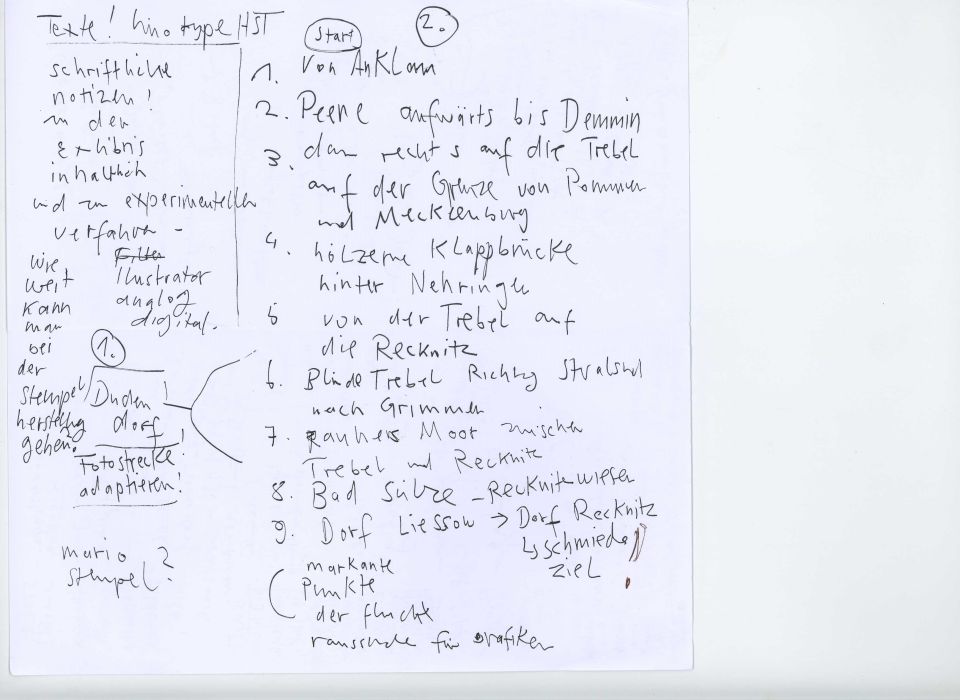 Texte! Linotype HST
schriftliche
notizen!
in den
Exlibris
inhaltlich
und zu experimentellen
verfahren -
Filter
Illustrator
analog
digital.
wie
weit
kann
man
bei
der
Stempel
herstellung
gehen?
1.
Duden
dorf!
Fotostrecke!
adaptieren!
mario
stempel?
2.
Start
1. von Anklam
2. Peene aufwärts bis Demmin
3. dann rechts auf die Trebel
auf der Grenze von Pommern
und Mecklenburg
4. hölzerne Klappbrücke
hinter Nehringen
5 von der Trebel auf
die Recknitz
6. Blinde Trebel Richtung Stralsund
nach Grimmen
7. rauhes Moor zwischen
Trebel und Recknitz
8. Bad Sülze - Recknitzwiesen
9. Dorf Liessow → Dorf Recknitz
↳ schmiede!
ziel
markante
Punkte
der flucht
raussuche für Grafiken